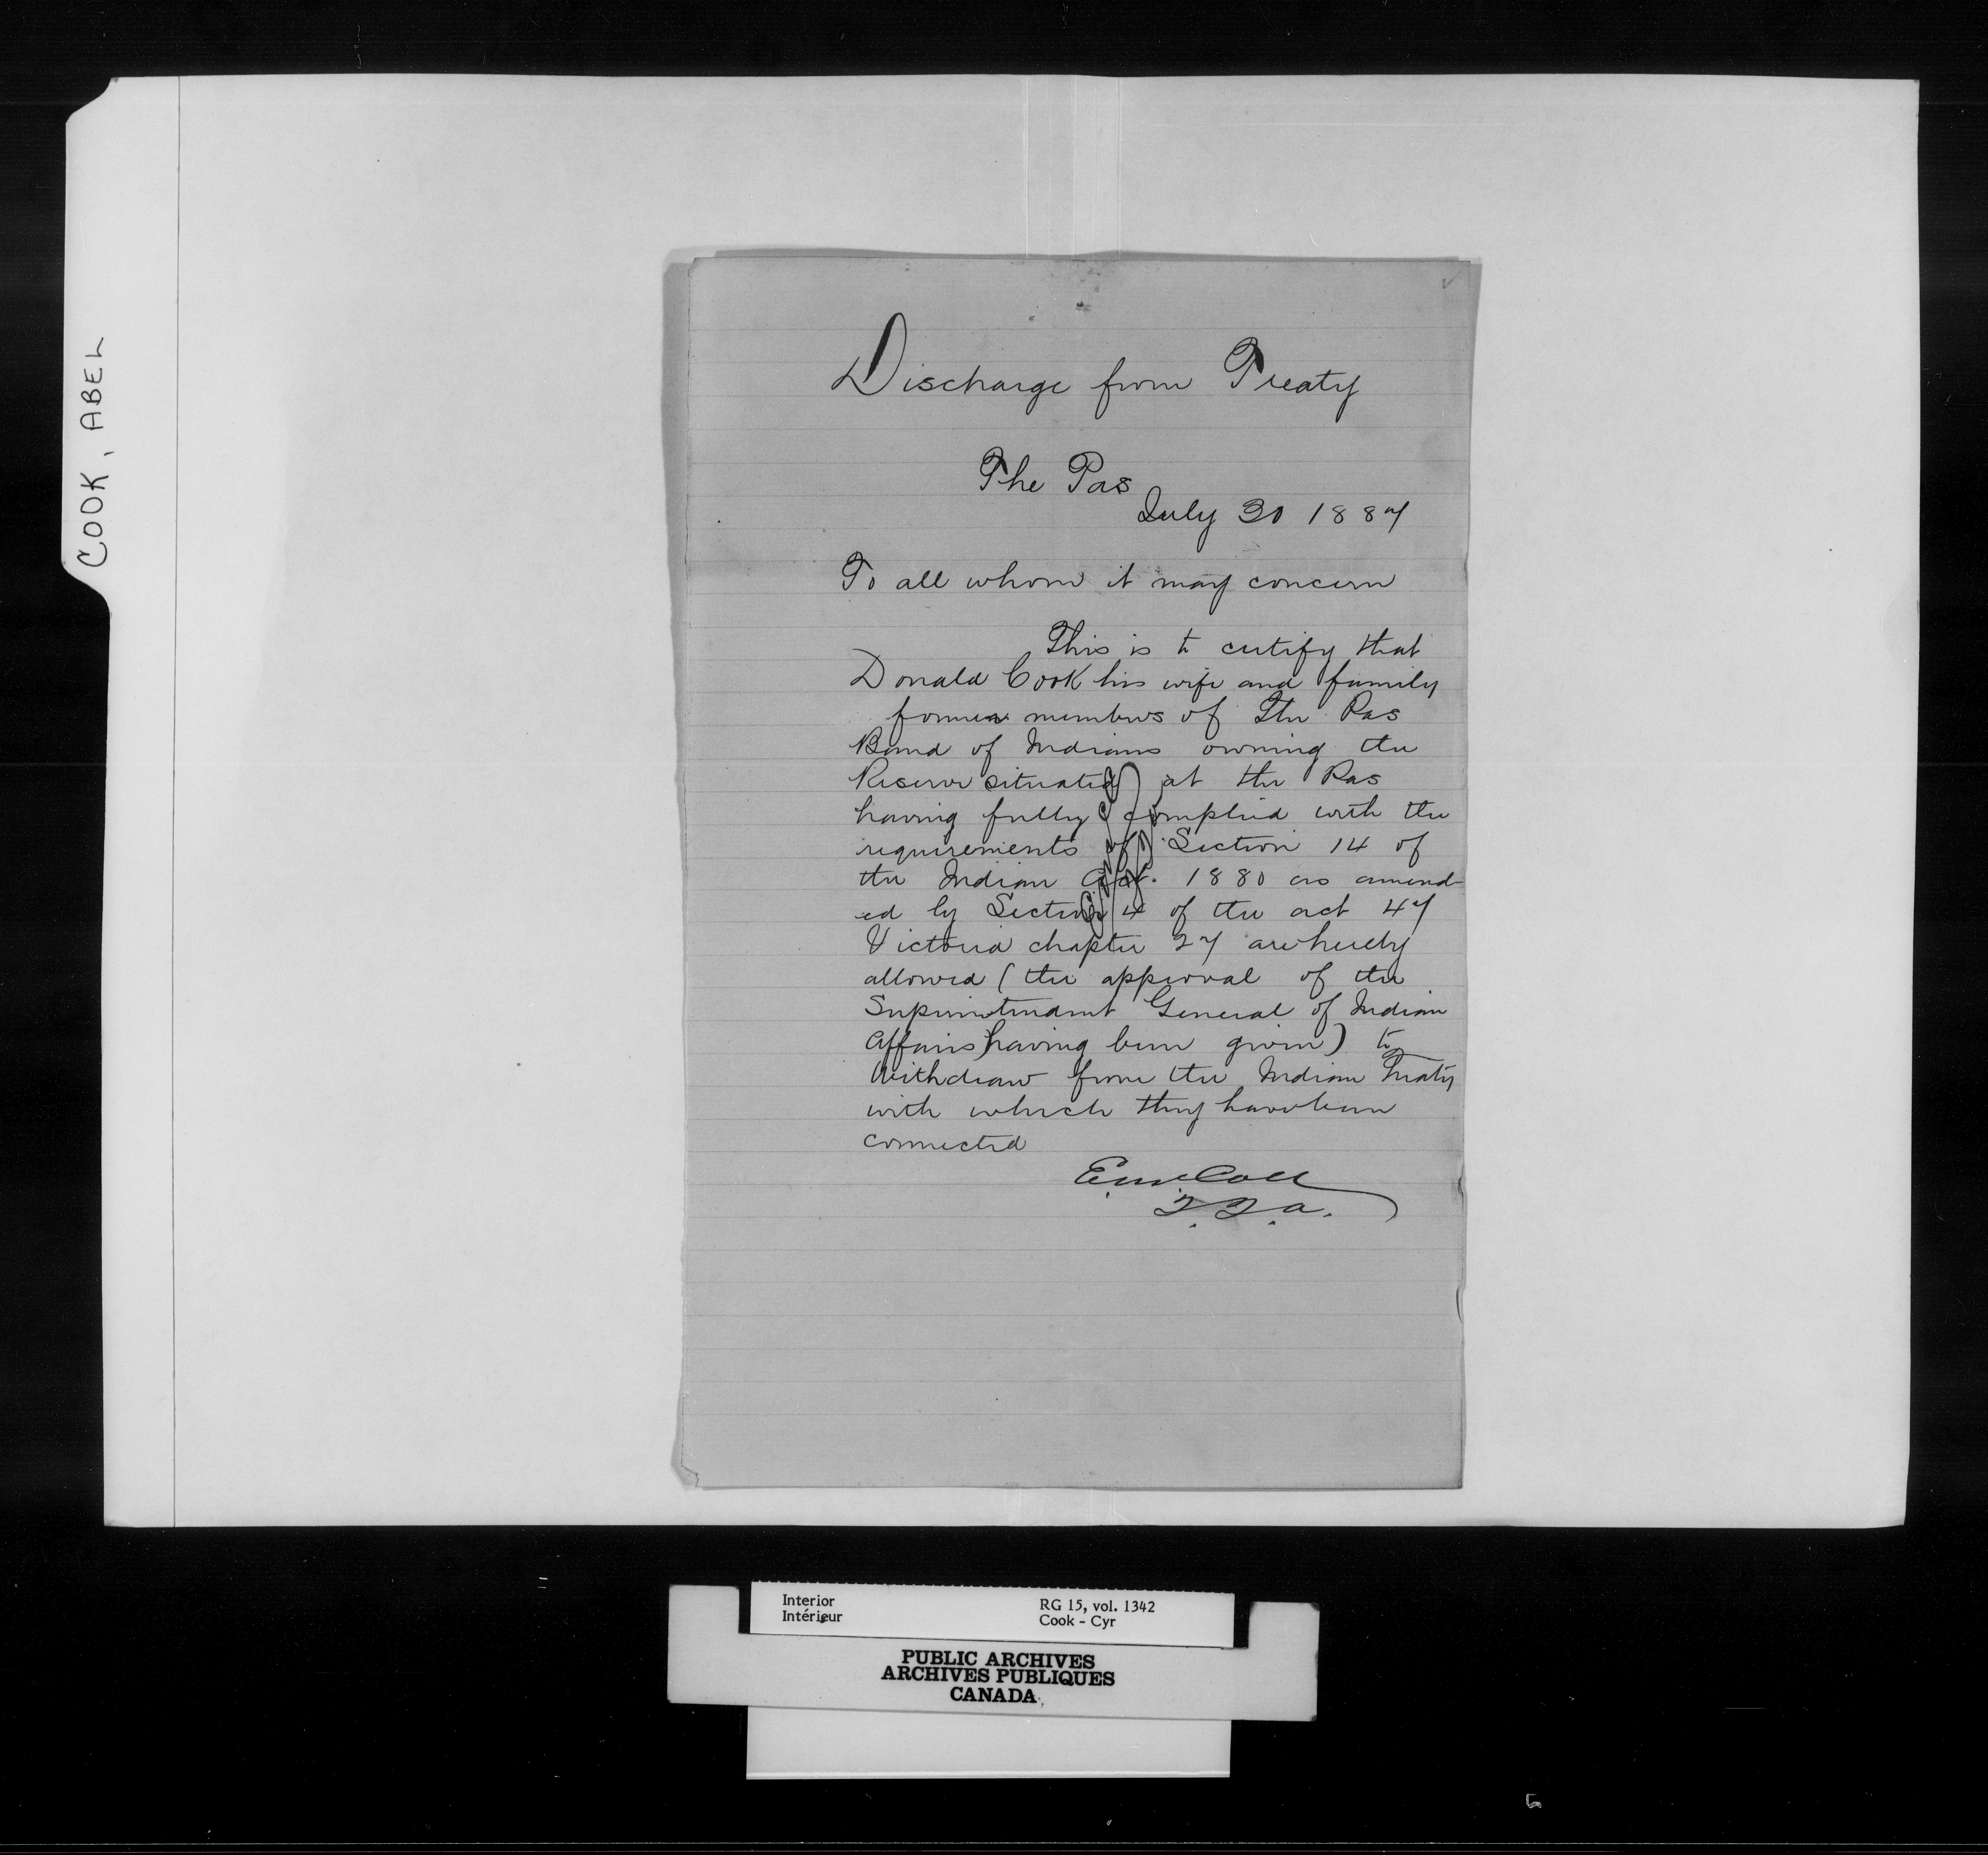 COOK, ABEL
Discharge from Treaty
The Pas
July 30 1887
To all whom it may concern
This is to certify that
Donald Cook his wife and family
former members of The Pas
Band of Indians owning the
Reserve situated at the Pas
having fully complied with the
requirements of Section 14 of
the Indian Act. 1880 as amend-
ed by Section 4 of the act 47
Victoria chapter 27 are hereby
allowed (the approval of the
Superintendent General of Indian
Affairs having been given) to
Withdraw from the Indian Treaty
with which they have been
connected
Interior
Intérieur
RG 15, vol. 1342
Cook - Cyr
PUBLIC ARCHIVES
ARCHIVES PUBLIQUES
CANADA